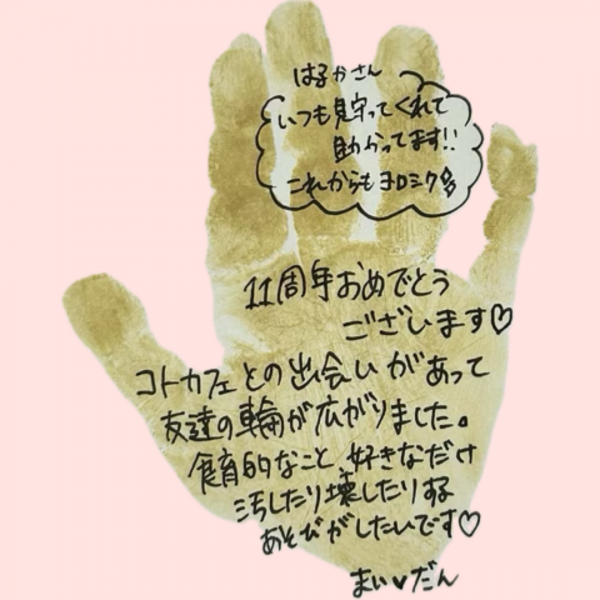 はるかさん
いつも見守ってくれて
助かってます!!
これからもヨロシク多
11周年おめでとう
ございます♡
コトカフェとの出会いがあって
友達の輪が広がりました。
食育的なこと、好きなだけ
汚したり壊したりする
あそびがしたいです♡
まい♥だん